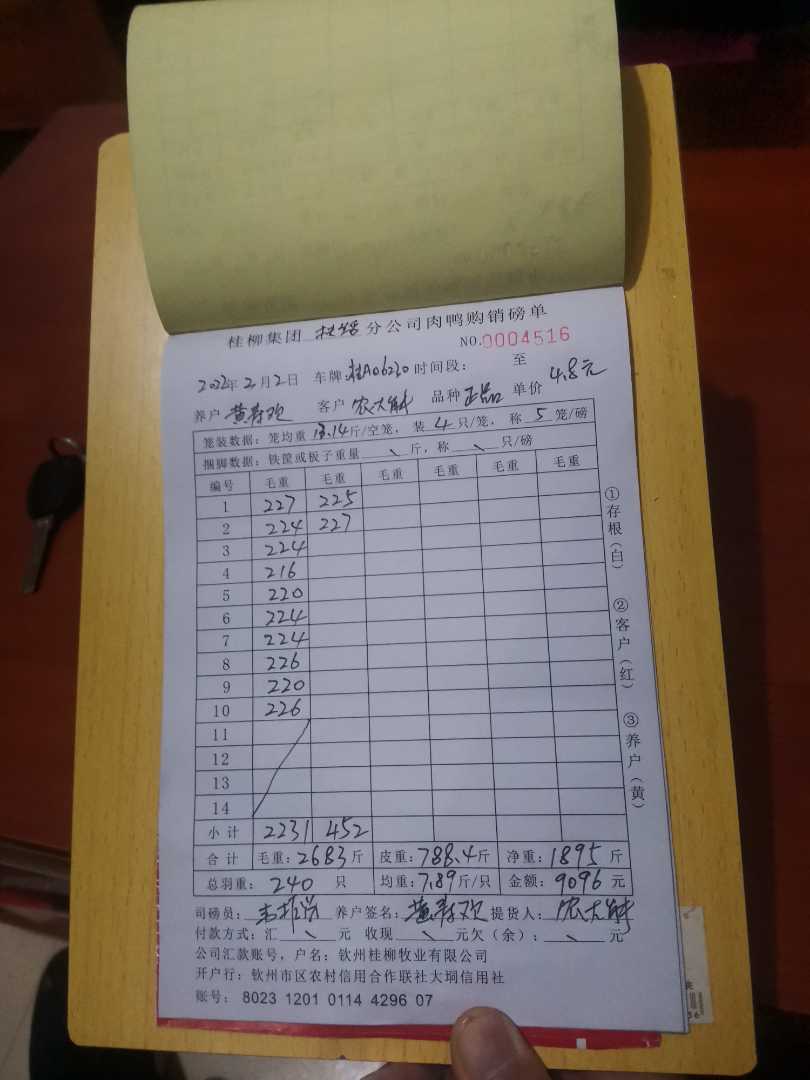 桂柳集团 分公司肉鸭购销磅单
NO.0004516
2022年2月2日 车牌:桂A06220 时间段: 至
养户 黄寿欢 客户 农大 品种 正品 单价 4.8元
笼装数据: 笼均重 13.14斤/空笼, 装 4 只/笼, 称 5 笼/磅
捆脚数据: 铁筐或板子重量 \ 斤, 称 \ 只/磅
编号 毛重 毛重 毛重 毛重 毛重 毛重
1 227 225
2 224 227
3 224
4 216
5 220
6 224
7 224
8 226
9 220
10 226
11
12
13
14
小计 2231 452
合计 毛重:2683斤 皮重:788.4斤 净重:1895斤
总羽重: 240 只 均重:7.89斤/只 金额:9096元
司磅员: 养户签名: 黄寿欢 提货人: 农大
付款方式: 汇 \ 元 收现 \ 元欠(余): \ 元
公司汇款账号, 户名: 钦州桂柳牧业有限公司
开户行: 钦州市区农村信用合作联社大垌信用社
账号: 8023 1201 0114 4296 07
①存根(白)
②客户(红)
③养户(黄)